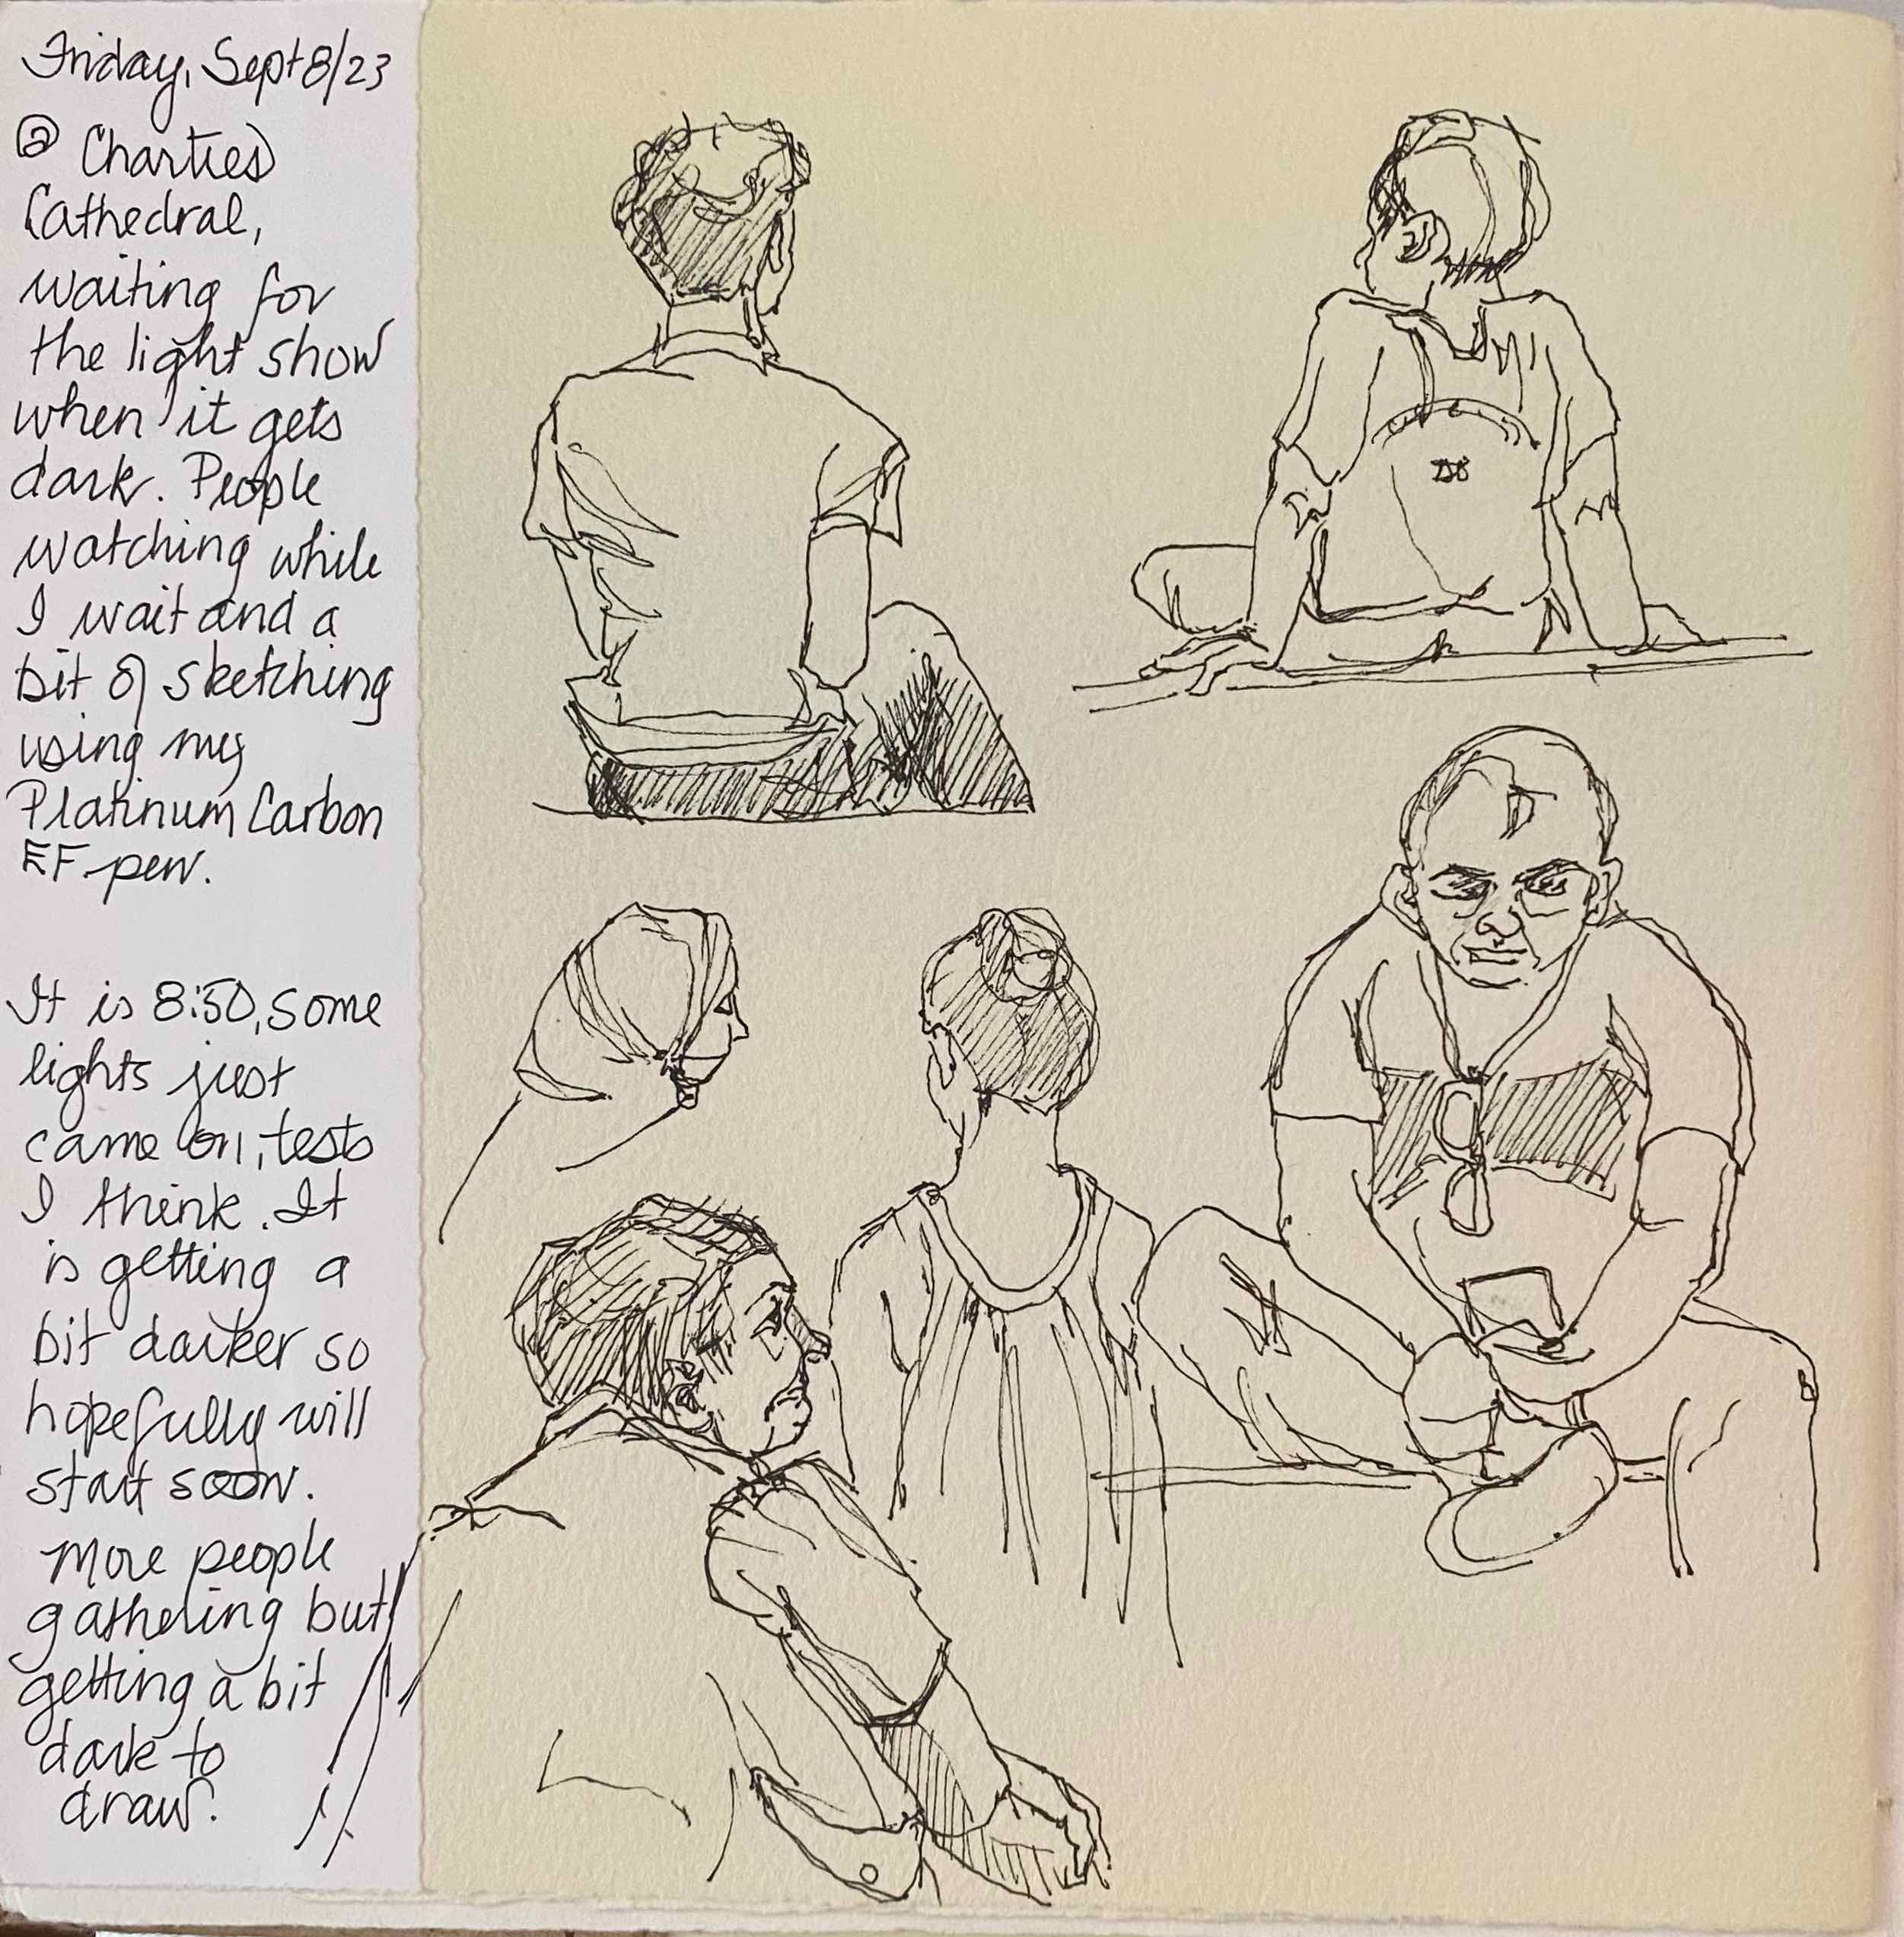 Friday, Sept 8/23
@ Chartres
Cathedral,
waiting for
the light show
when it gets
dark. People
watching while
I wait and a
bit of sketching
using my
Platinum Carbon
EF pen.
It is 8:50, some
lights just
came on, tests
I think. It
is getting a
bit darker so
hopefully will
start soon.
More people
gathering but
getting a bit
dark to
draw.